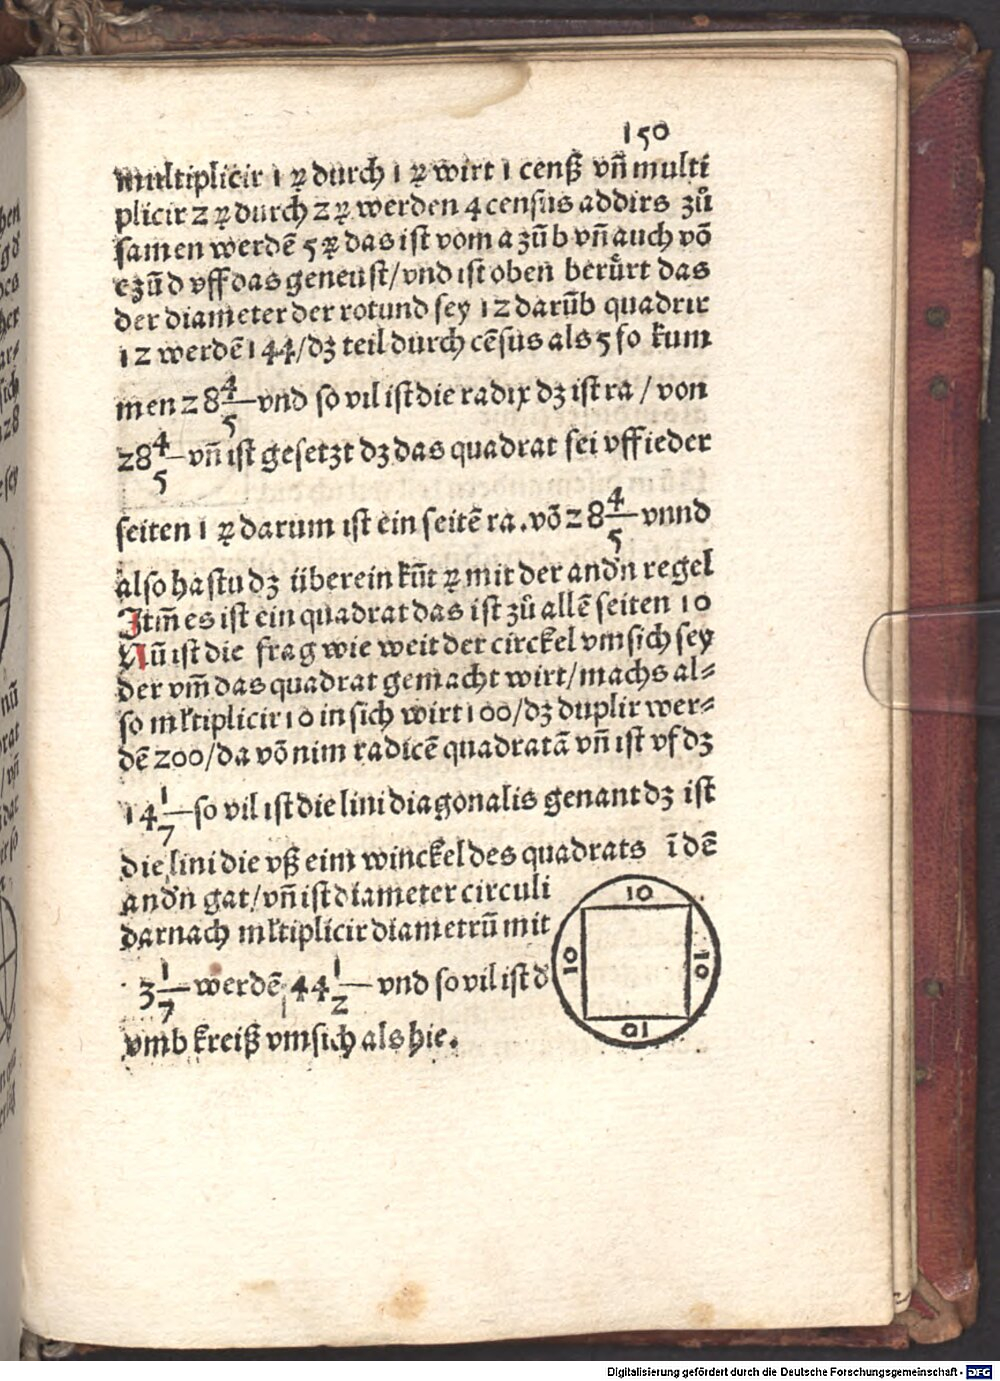 150
multiplicir 1 ꝝ durch 1 ꝝ wirt 1 censß vn̄ multi
plicir 2 ꝝ durch 2 ꝝ werden 4 census addirs zů
samen werdē 5 ꝝ das ist vom a zū b vn̄ auch vō
e zū d vff das geneust/vnd ist oben berůrt das
der diameter der rotund sey 12 darūb quadrir
12 werdē 144/dz teil durch cēsus als 5 so kum
men 28 4/5 vnd so vil ist die radix dz ist ra / von
28 4/5 vn̄ ist gesetzt dz das quadrat sei vff ieder
seiten 1 ꝝ darum ist ein seitē ra. vō 28 4/5 vnnd
also hastu dz überein kūt ꝝ mit der andn̄ regel
Itm̄ es ist ein quadrat das ist zů allē seiten 10
Nū ist die frag wie weit der circkel vmsich sey
der vm̄ das quadrat gemacht wirt/machs al⸗
so mltiplicir 10 in sich wirt 100/dz duplir wer⸗
dē 200/da vō nim radicē quadratā vn̄ ist vf dz
14 1/7 so vil ist die lini diagonalis genant dz ist
die lini die vß eim winckel des quadrats ī dē
andn̄ gat/vn̄ ist diameter circuli
darnach mltiplicir diametrū mit
3 1/7 werdē 44 1/2 vnd so vil ist d̄
vmb kreiß vmsich als hie.
10
10
10
10
Digitalisierung gefördert durch die Deutsche Forschungsgemeinschaft - DFG